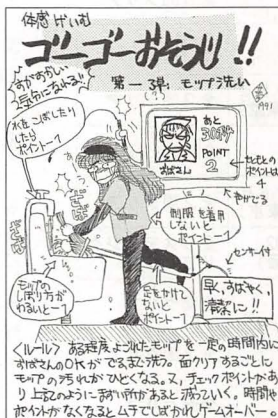 体感げいむ
ゴーゴーおそうじ!!
第一3章: モップ洗い
1991
すがすがしい
気分になれる!!
水をこぼしたり
したら
ポイントー1
あと
30秒
POINT
2
おばさん
もともとの
ポイントは
4
制服を着用
しないと
ポイントー1
センサー付
モップの
しぼり方が
わるいとー1
足をかけて
ないと
ポイントー1
早く、すばやく
確実に!!
<ルール> ある程度よごれたモップを一定の時間内に
おばさんのOKがでるまで洗う。面クリアするごとに
モップの汚れがひどくなる。又、チェックポイントがあ
り上記のようにまずい所があると減っていく。時間や
ポイントがなくなるとムチでしばかれゲームオーバー。